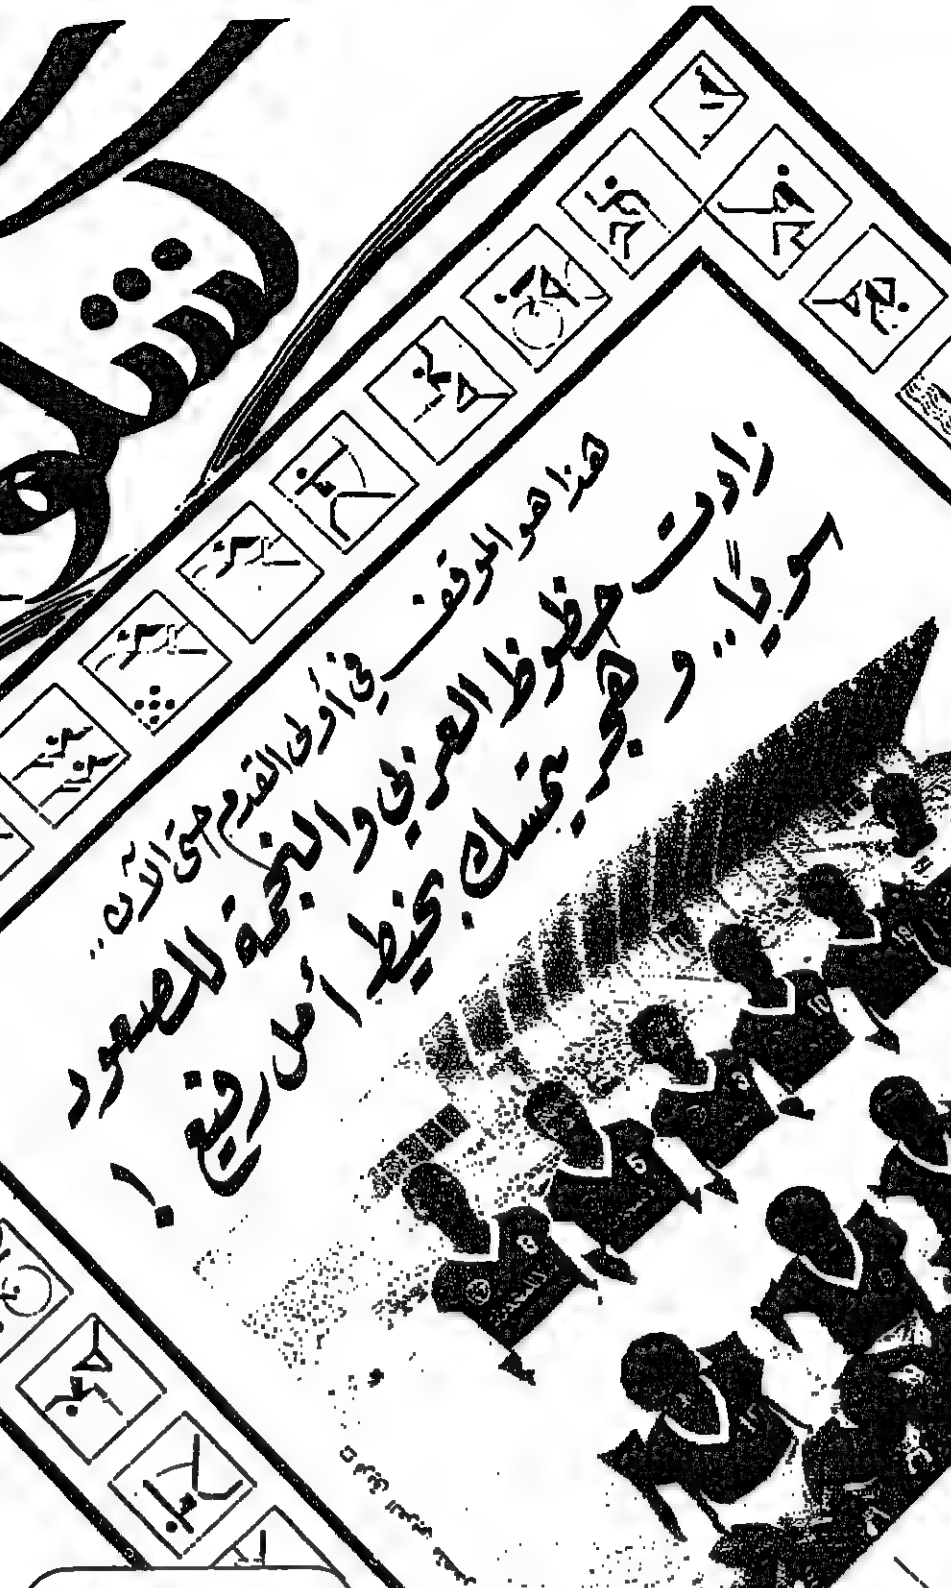 هذا هو الموقف في أولى القدم حتى الآن ..
زادت حظوظ العربي والنجمة للصعود
سويًا .. و هجر يتمسك بخيط أمل رفيع !